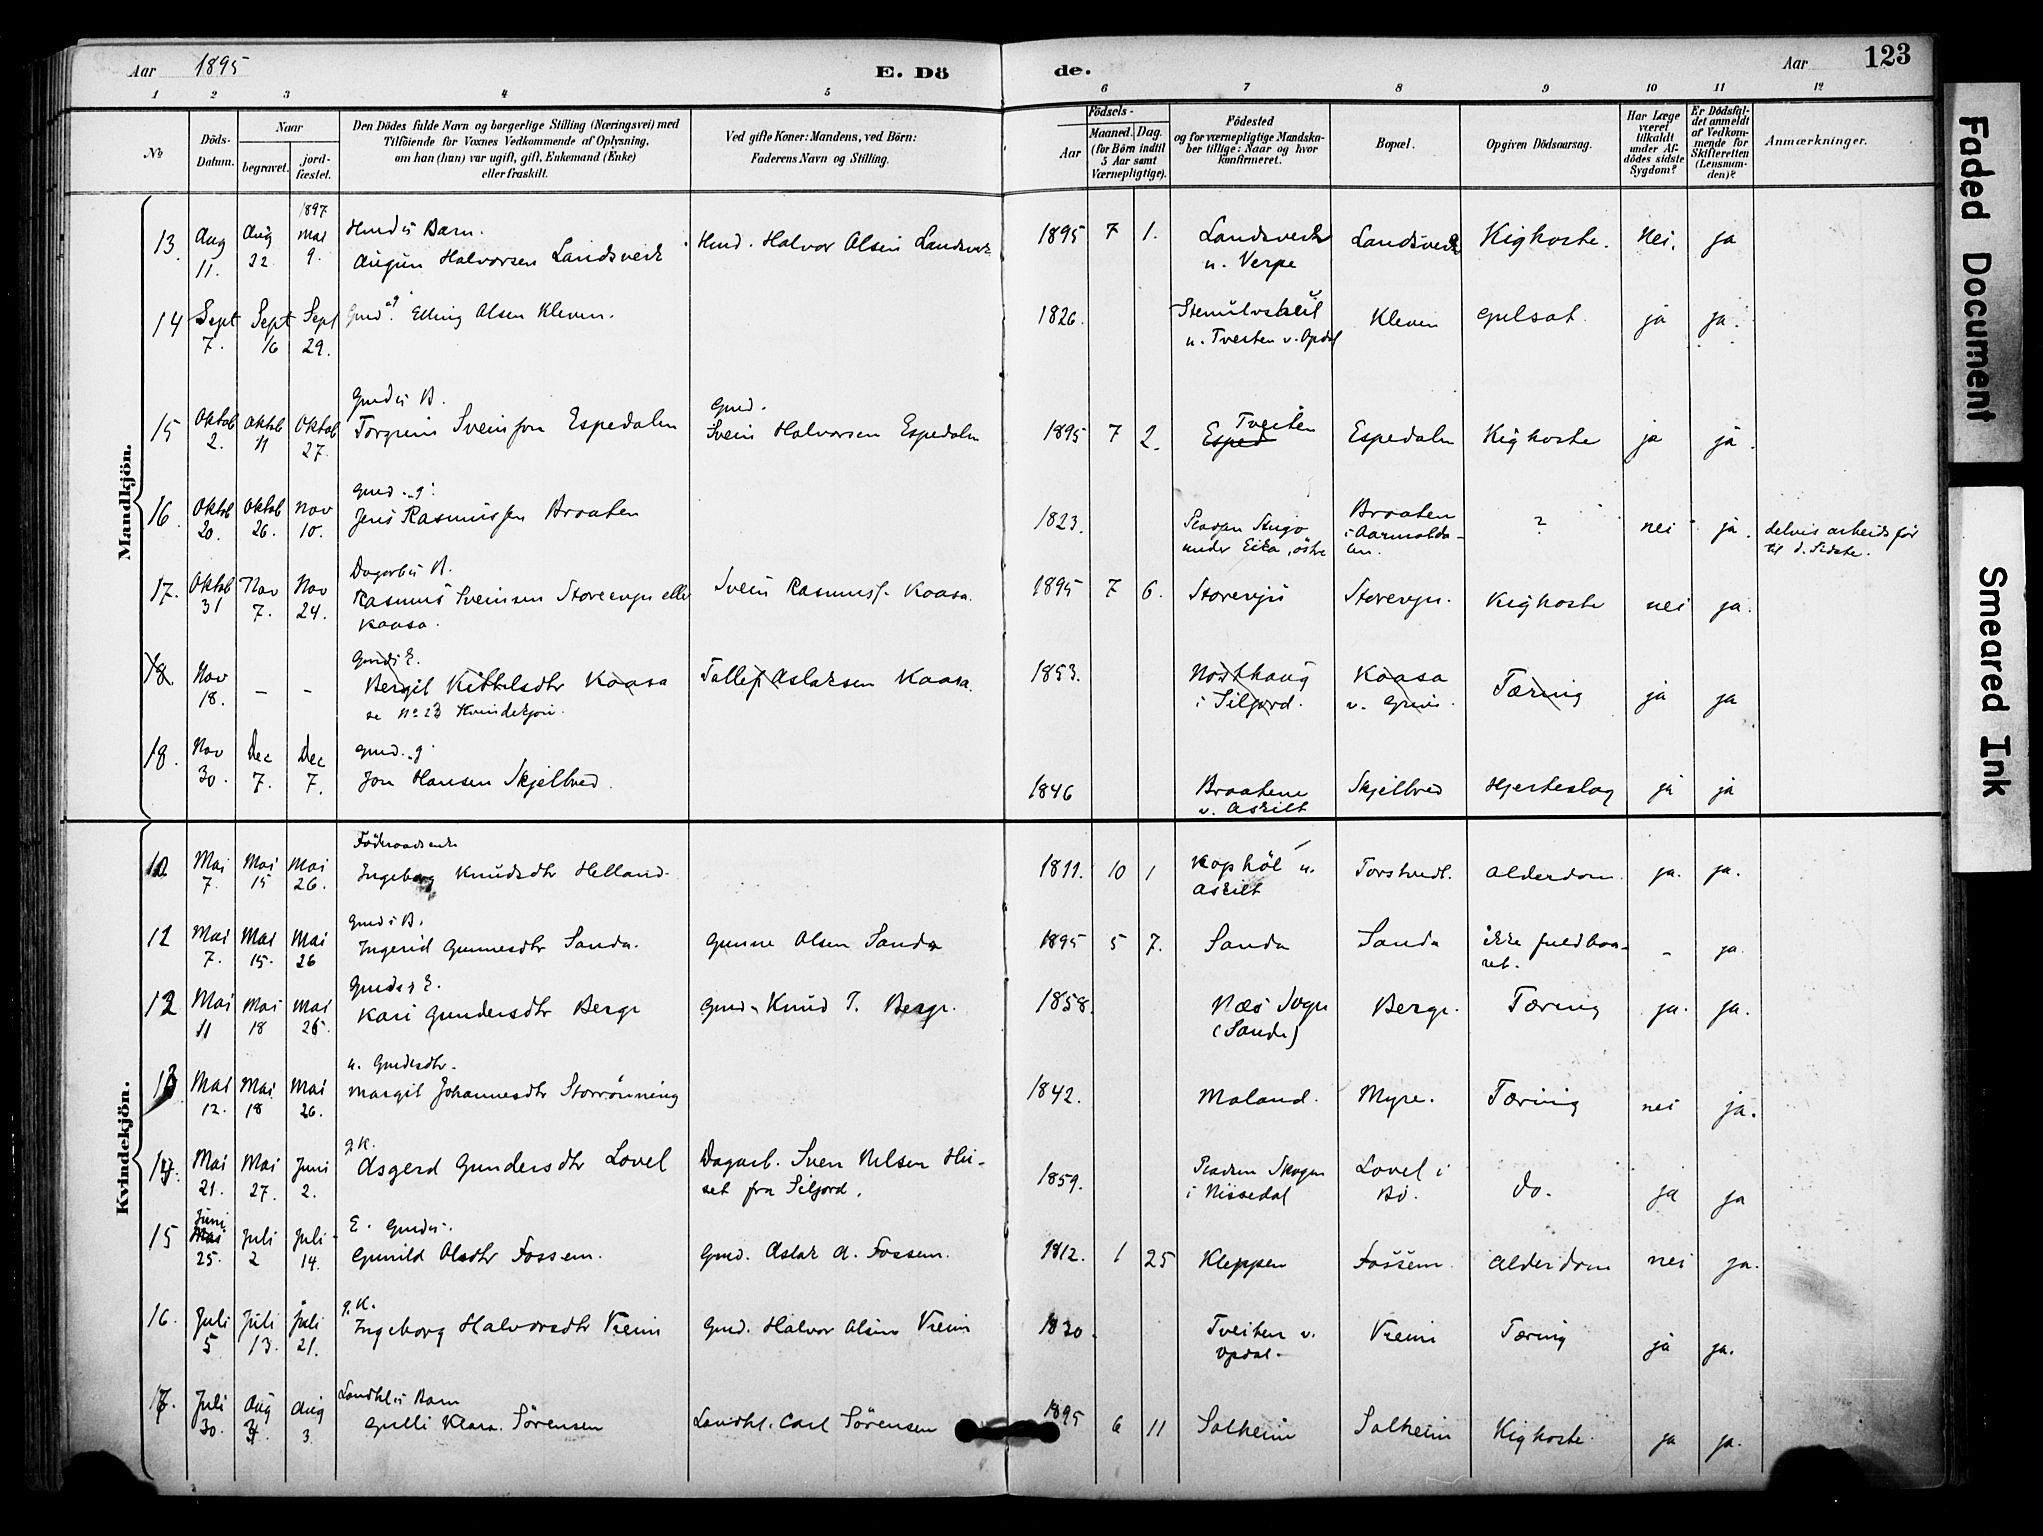 Aar 1895
E. Döde.
Aar 123
1 2 3 4 5 6 7 8 9 10 11 12
No
Döds-Datum.
Naar
begravet.
jord-fæstet.
Den Dödes fulde Navn og borgerlige Stilling (Næringsvei) med
Tilföiende for Voxnes Vedkommende af Oplysning,
om han (hun) var ugift, gift, Enkemand (Enke)
eller fraskilt.
Ved gifte Koner: Mandens, ved Börn:
Faderens Navn og Stilling.
Födsels-
Aar
Maaned. Dag.
(for Börn indtil
5 Aar samt
Værnepligtige).
Födested
og for værnepligtige Mandska-
ber tillige: Naar og hvor
konfirmeret.
Bopæl.
Opgiven Dödsaarsag.
Har Læge
været
tilkaldt
under Af-
dödes sidste
Sygdom?
Er Dödsfal-
det anmeldt
af Vedkom-
mende for
Skifteretten
(Lensman-
den)?
Anmærkninger.
Mandkjön.
13. Aug 11. Aug 22. 1897 Mai 9. Halvorsen Landsverk Halvor Olsen Landsverk 1895 7 1. Landsverk u. Verpe Landsverk Kighoste. Nei. ja
14 Sept 7. Sept 16 Sept 29. Gmd. g. Elling Olsen Kleven. 1826. u. Tveiten v. Opdal Kleven Gulsot. ja ja.
15 Oktob 2. Oktob 11 Oktob 27. Gmds B. Sveinsson Espedalen Gmd. Svein Halvorsen Espedalen 1895 7 2. Esped Tveiten Espedalen Kighoste ja ja.
16. Oktob 20. Oktob 26. Nov 10. Gmd. g. Jens Rasmussen Braaten 1823. under Eika, östre Braaten i ? nei ja. delvis arbeidsför til d. Sidste.
17. Oktob 31 Nov 7. Nov 24. Dagarb.s B. Rasmus Sveinsen eller Kaasa. Svein Rasmuss. Kaasa. 1895 7 6. Kighoste nei ja.
18 Nov 18. – – Gmds E. Bergit Kittelsdtr Kaasa se No 23 Kvindekjön. Tollef Aslaksen Kaasa. 1853. Nordhaug i Siljord. Kaasa Tæring ja ja
18. Nov 30. Dec 7. Dec 7. Gmd. g. Jon Hansen Skjelbred. 1846 Braatene u. Askilt Skjelbred Hjerteslag ja ja
Kvindekjön.
Mai 7. Mai 15 Mai 26. Föderaadsenke Ingeborg Knudsdtr Helland. 1811. 10 1 u. Askilt Torstvedt. Alderdom. ja. ja.
12 Mai 7. Mai 15. Mai 26 Gmds B. Ingerid Gunnesdtr Sanda. Gunne Olsen Sanda 1895 5 7. Sanda Sanda ikke fuldbaa-
ret. – ja.
Mai 11 Mai 18 Mai 26. Gmds E. Kari Gundersdtr Berge Gmd. Knud T. Berge. 1858. Næs Sogn (Sande) Berge. Tæring ja. ja.
13 Mai 12. Mai 18 Mai 26. u. Gmdsdtr. Margit Johannesdtr Storrönning 1842. Moland. Myre. Tæring nei ja.
14. Mai 21. Mai 27. Juni 2. g.K. Asgerd Gundersdtr Lovel Dagarb. Sven Nelsen fra Siljord. 1859. i Nissedal Lovel i Bö. do. ja ja
15 Juni Mai 25. Juli 2 Juli 14. E. Gmds. Gunild Olsdtr Fossem. Gmd. Aslak A. Fossem. 1812. 1 25 Kleppen Fossem. Alderdom nei ja.
16. Juli 5 Juli 13. Juli 21. g.K. Ingeborg Halvorsdtr Vreim Gmd. Halvor Olsen Vreim 1830. Tveiten u. Opdal. Vreim Tæring ja ja.
17. Juli 30. Aug 3 Aug 3. Landhl.s Barn Gulli Klara Sörensen Landhl. Carl Sörensen 1895 6 11 Solheim Solheim Kighoste. ja ja.
Faded Document
Smeared Ink